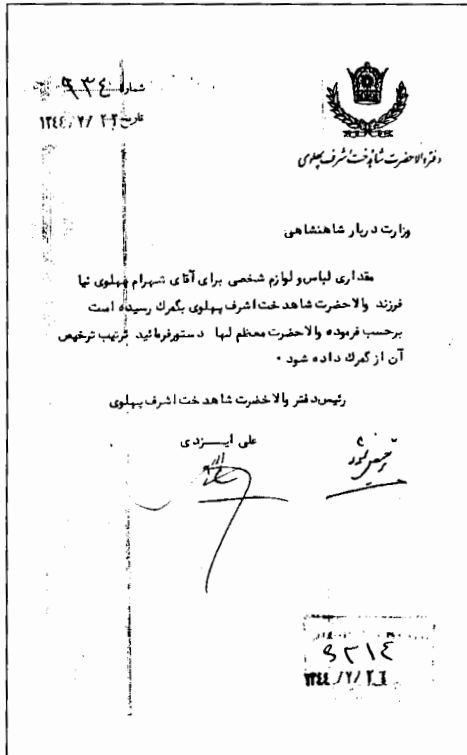 شماره ۹۳٤
تاریخ ۱۳٤٤/۷/۲۲
دفتر والاحضرت شاهدخت اشرف پهلوی
وزارت دربار شاهنشاهی
مقداری لباس و لوازم شخصی برای آقای شهرام پهلوی نیا
فرزند والاحضرت شاهدخت اشرف پهلوی بگمرك رسیده است
برحسب فرموده والاحضرت معظم لها دستور فرمائید ترتیب ترخیص
آن از گمرك داده شود ۰
رئیس دفتر والاحضرت شاهدخت اشرف پهلوی
علی ایـــزدی
ترخیص شود
۹۲۱٤
۱۳٤٤/۷/۲٦